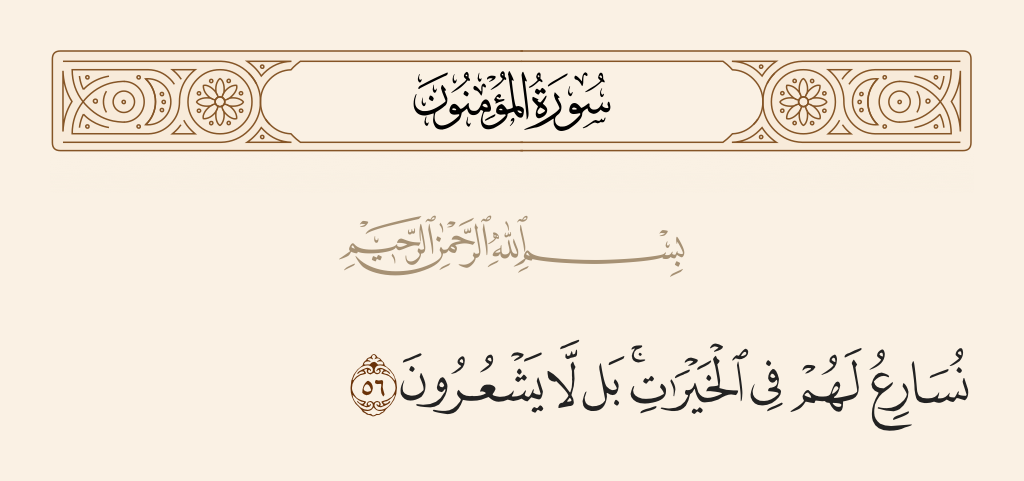 سُورَةُ المُؤْمِنُونَ
بِسْمِ ٱللَّهِ ٱلرَّحْمَٰنِ ٱلرَّحِيمِ
نُسَارِعُ لَهُمْ فِى ٱلْخَيْرَٰتِ ۚ بَل لَّا يَشْعُرُونَ ٥٦